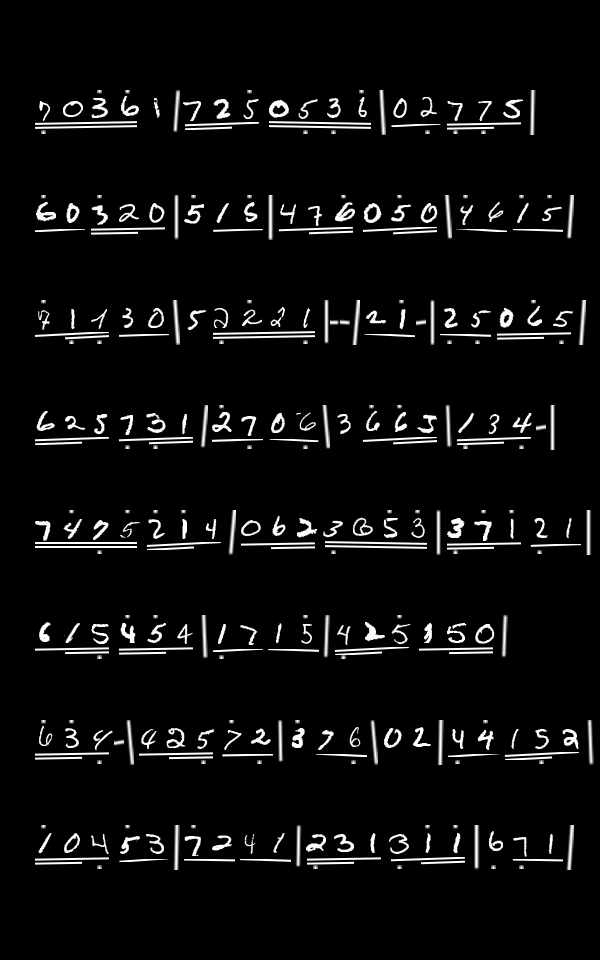 70361|7250536|02775
60320|515|476050|4615
71130|52221|--|21-|25065
625731|2706|3665|134-
7475214|0623053|37121
615454|1715|425150
634-|42572|376|02|44152
10453|7241|231311|671